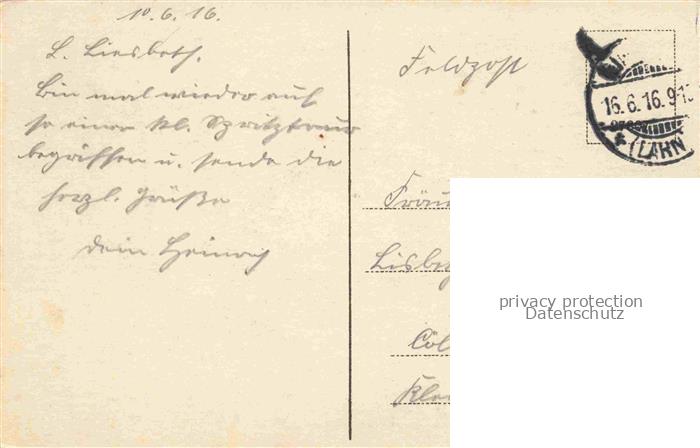 10.6.16.
L. Liesbeth.
Bin mal wieder auf
so einer kl. Spritztour
begriffen u. sende die
herzl. Grüße
Dein Heinrich
Feldpost
16.6.16.9-1
* (LAHN
Fräu
Lisbe
Cöl
Kle
privacy protection
Datenschutz